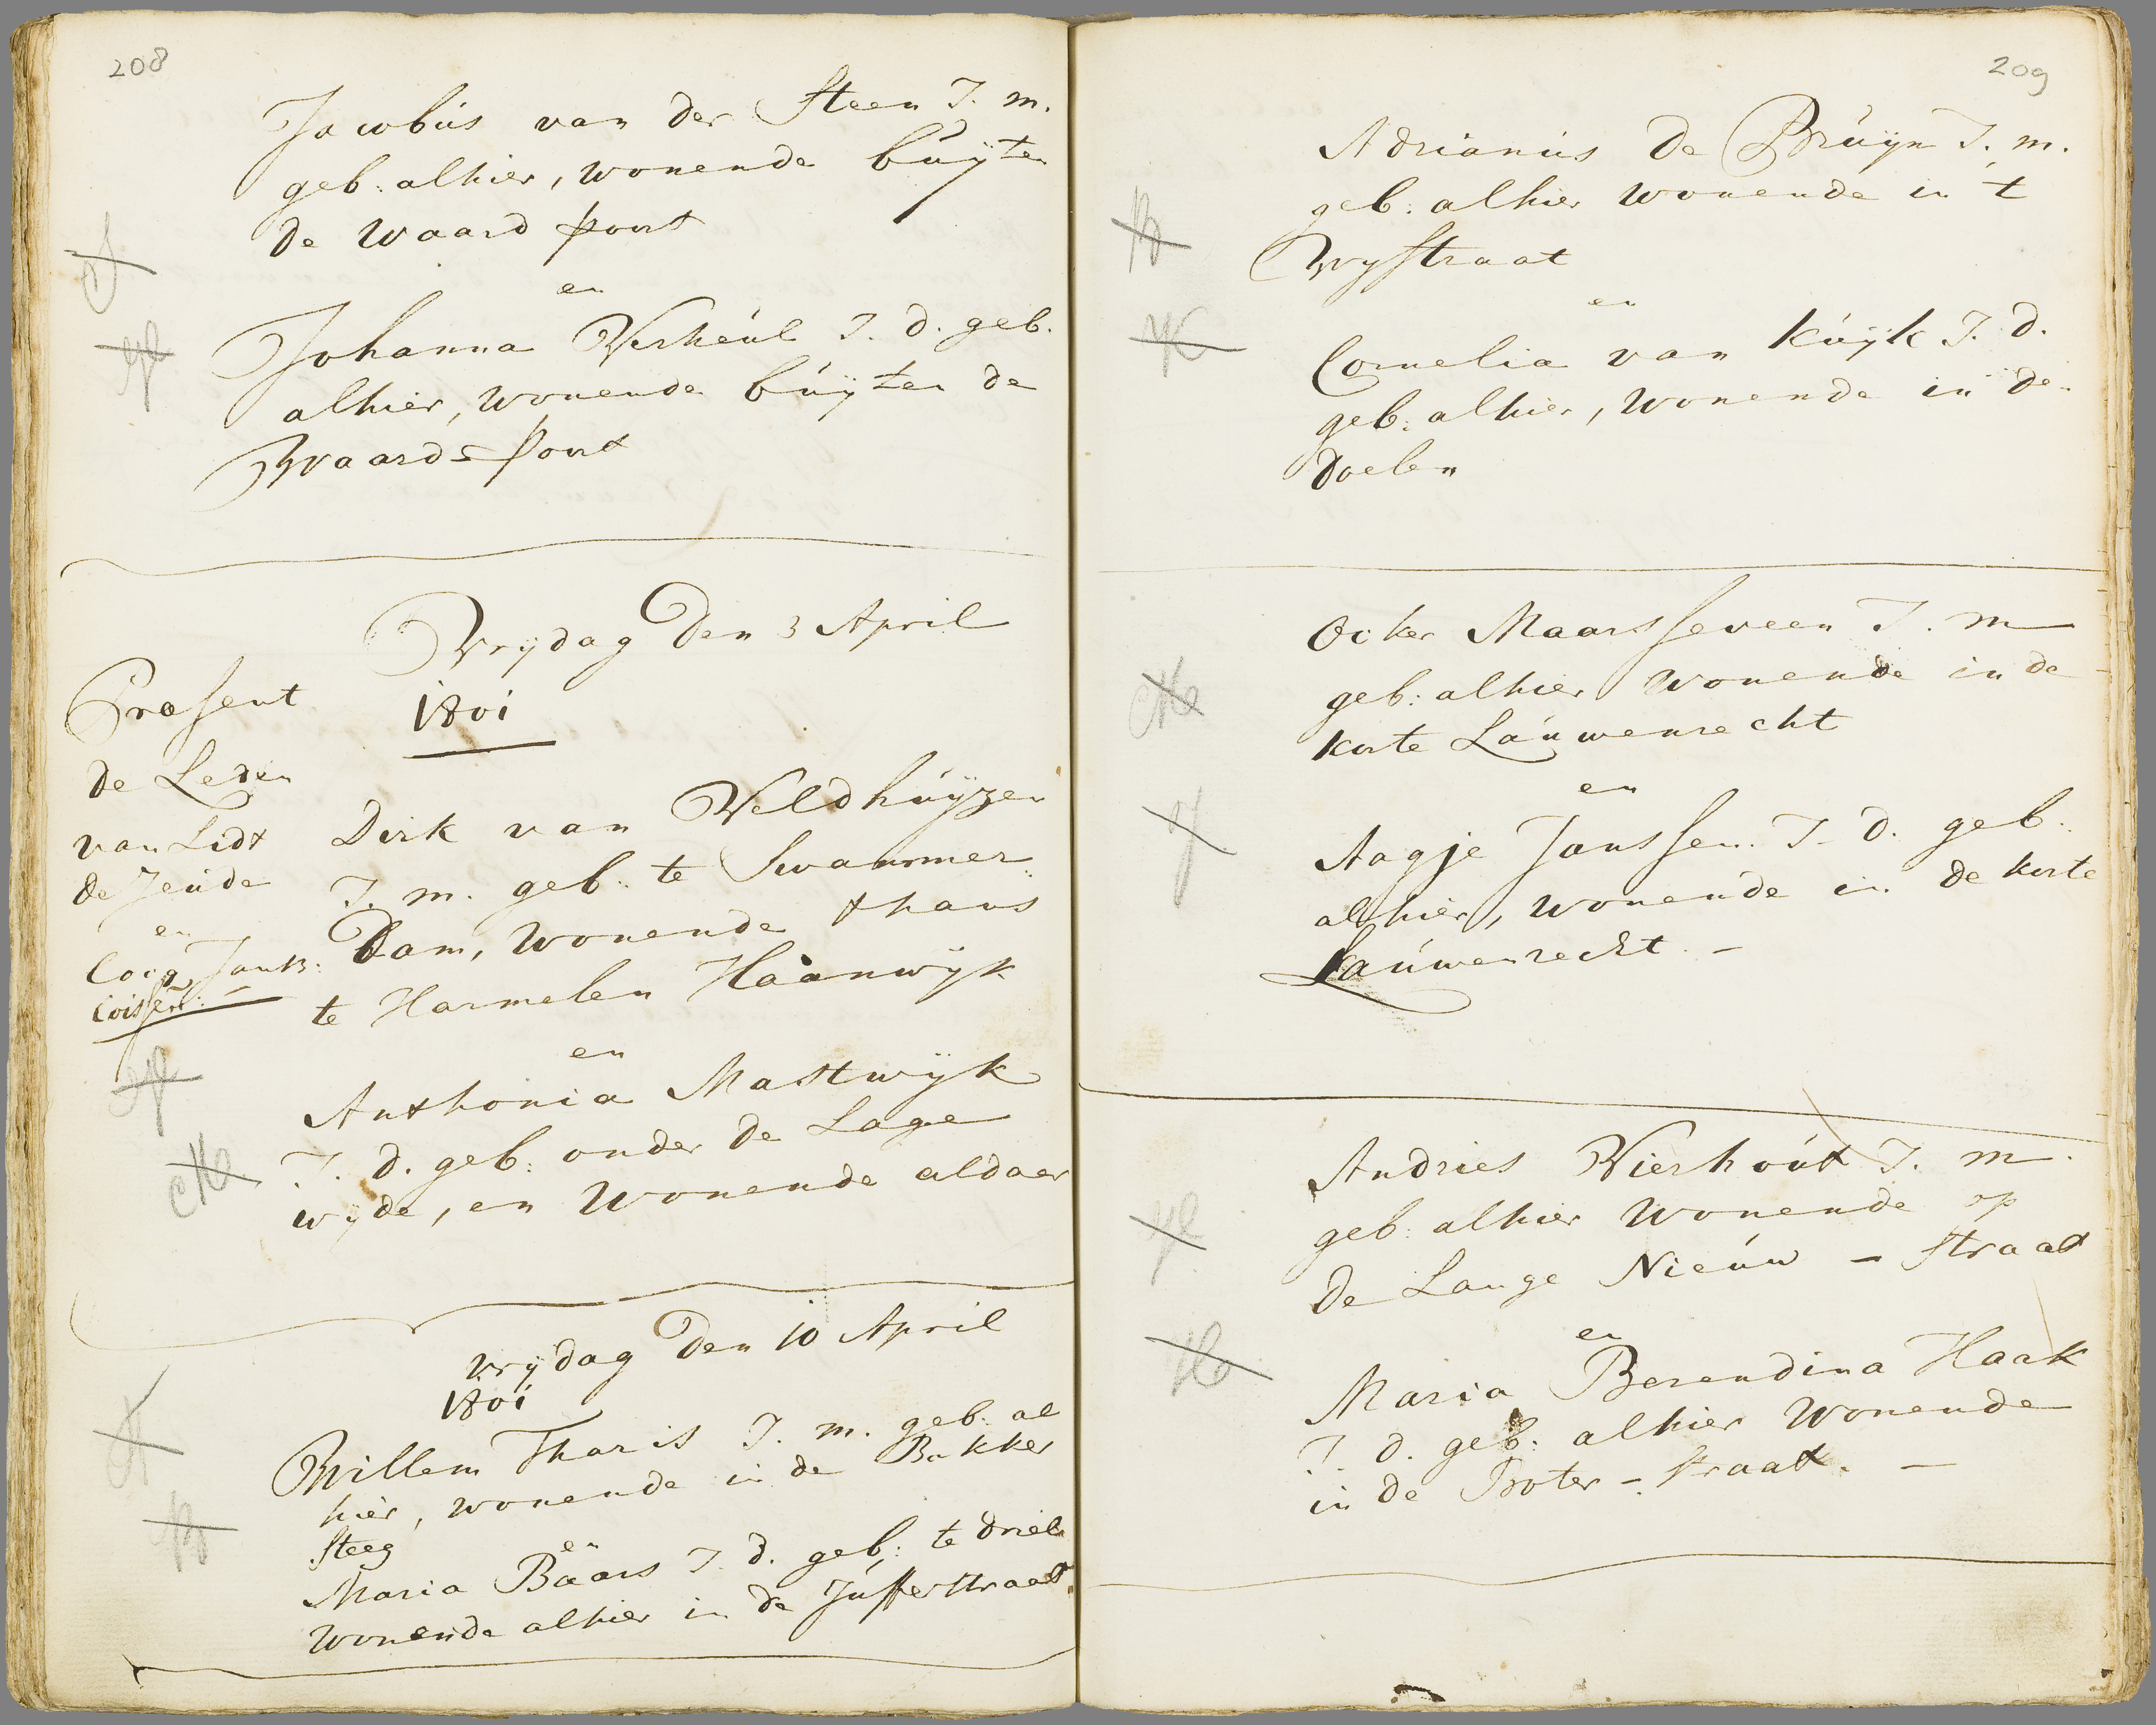 208
Jacobus van der Steen J. m.
geb: alhier, wonende buÿten
de waard poort
en
Johanna Verheul J. d. geb.
alhier, wonende buÿten de
Waard=poort
Vrijdag den 3 April
1801
Present
de Leden
van Lidt
de Jeude
en
Dirk van Veldhuÿzen
J. m. geb: te Swammer:
Dam, wonende thans
te Harmelen Haanwÿk
en
Anthonia Mastwÿk
J. d. geb: onder de Lage
wÿde, en wonende aldaar
vrÿdag den 10 April
1801
Willem Tharis J. m. geb: al
hier, wonende in de Bakker
steeg
en
Maria Baars J. d. geb: te Driel
wonende alhier in de Jufferstraat
209
Adrianus de Bruÿn J. m.
geb: alhier wonende in 't
Wystraat
en
Cornelia van Kuÿk J. d.
geb: alhier, wonende in de
Doelen
Ocker Maarsseveen J. m
geb: alhier wonende in de
korte Lauwenrecht
en
Aagje Janssen J. d. geb:
alhier, wonende in de korte
Lauwenrecht. -
Andries Vierhout J. m.
geb: alhier wonende op
de Lange Nieuw - straat
en
Maria Berendina Haak
J. d. geb: alhier wonende
in de Boter - straat. -